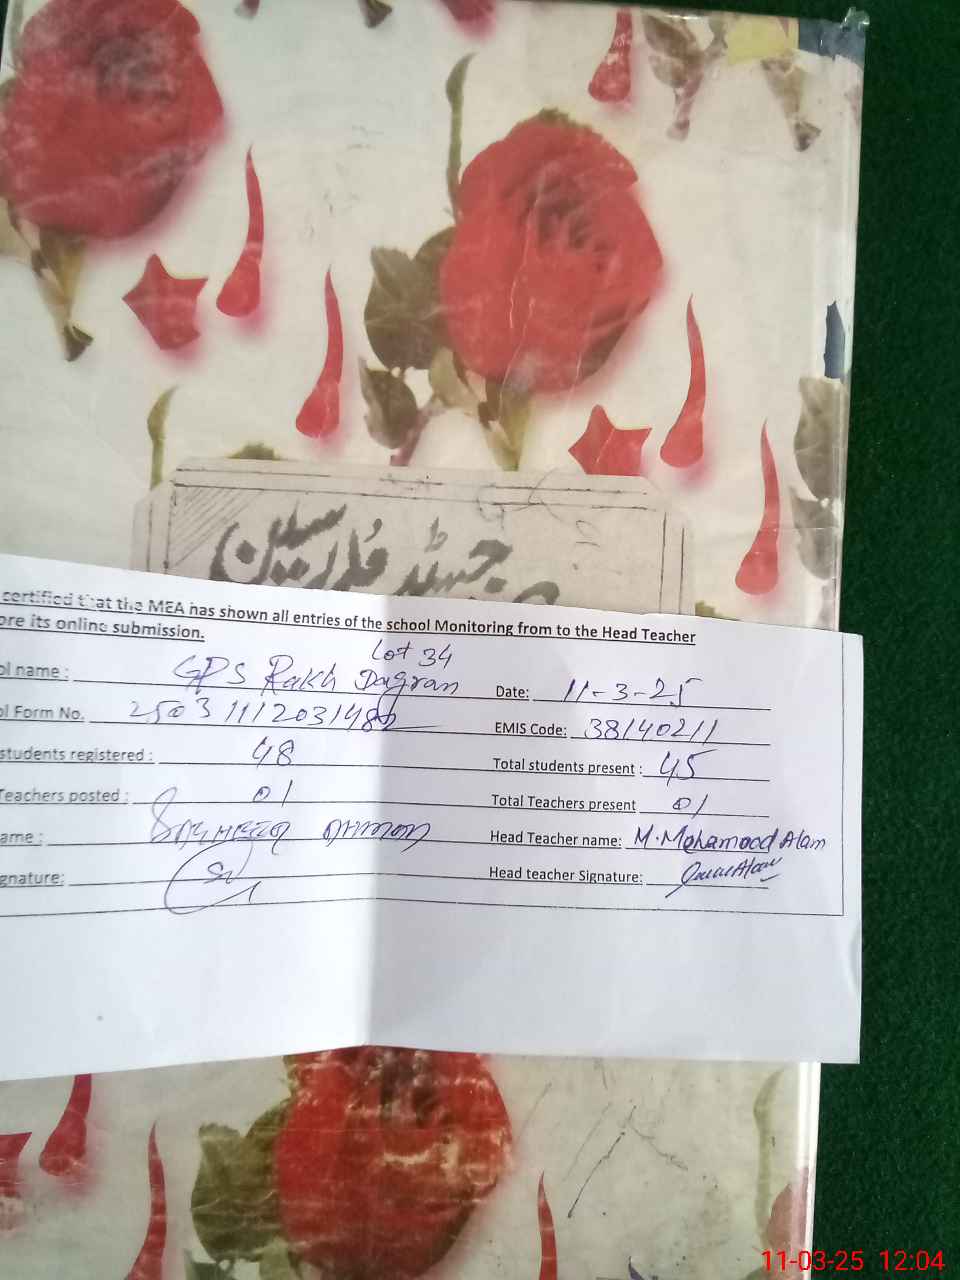 رجسٹر مدرسین
certified that the MEA has shown all entries of the school Monitoring from to the Head Teacher
ore its online submission.
Lot 34
ol name : GPS Rakh Dagran Date: 11-3-25
ol Form No. 25031112031482 EMIS Code: 38140211
students registered : 48 Total students present : 45
Teachers posted : 01 Total Teachers present 01
ame : Head Teacher name: M. Mehamood Alam
gnature: Head teacher Signature:
11-03-25 12:04